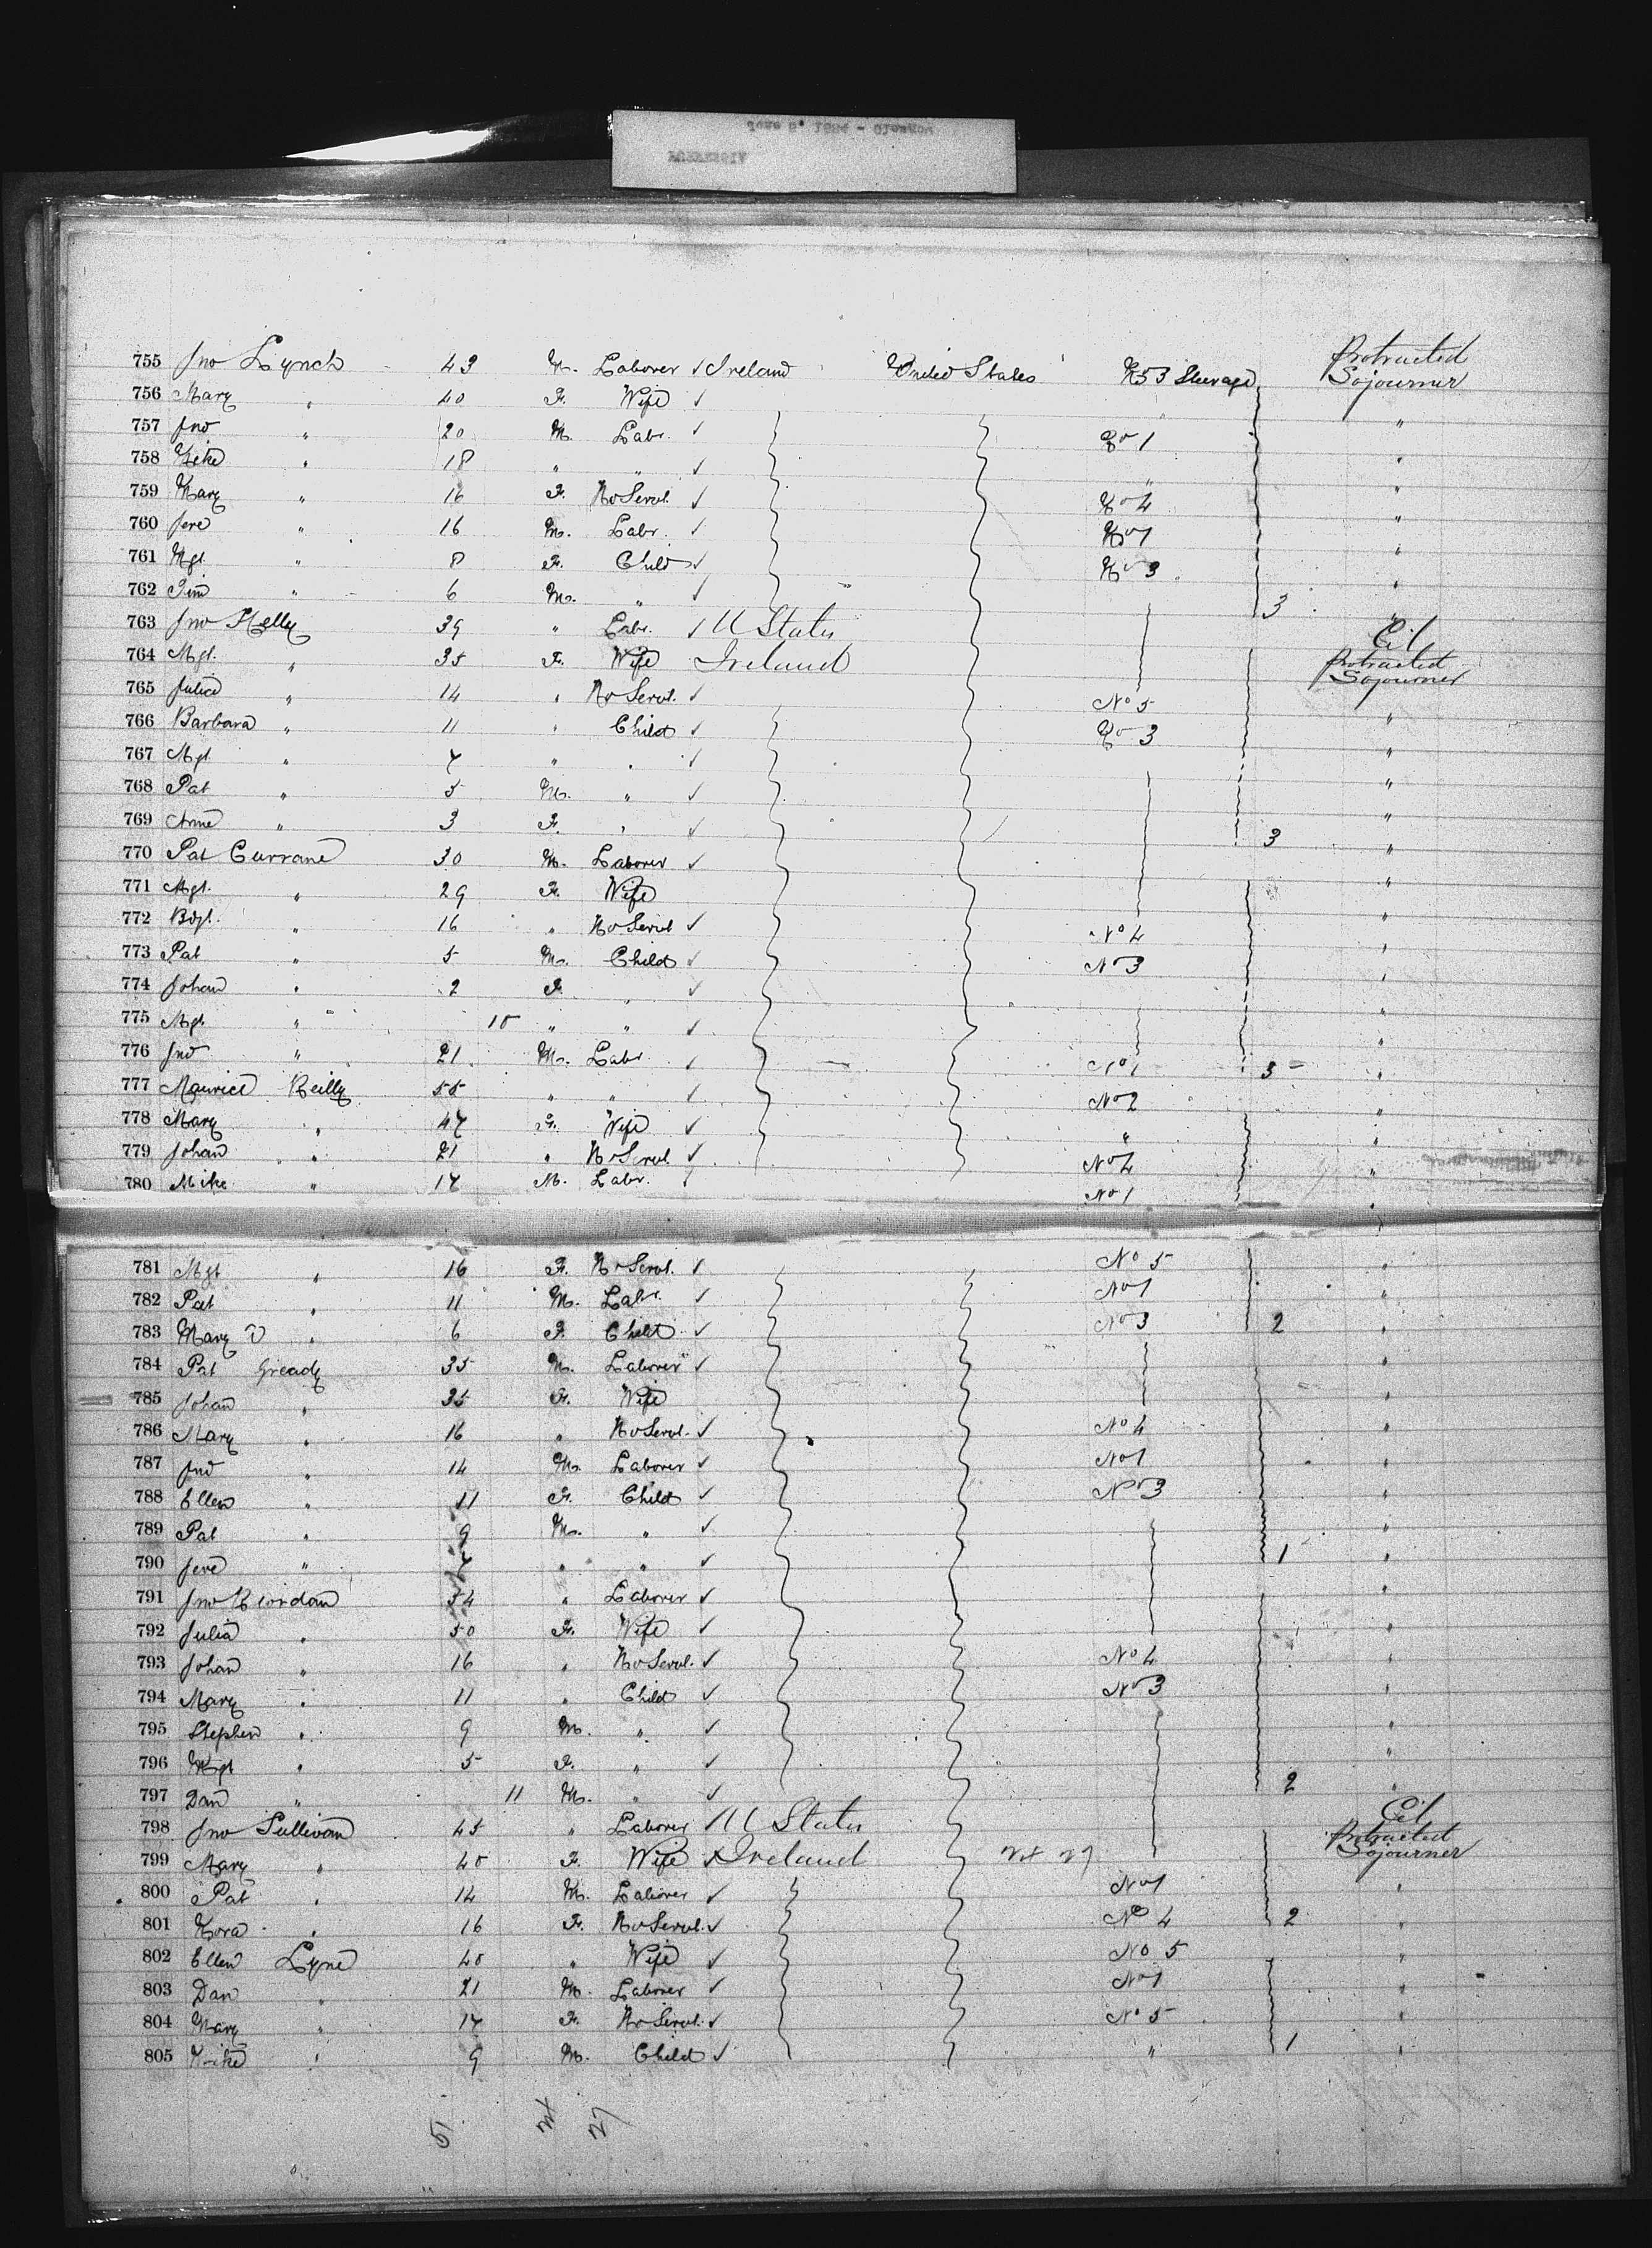 755 Jno Lynch 43 M. Laborer ✓ Ireland United States No 3 Steerage Protracted Sojourner
756 Mary " 40 F. Wife ✓ "
757 Jno " 20 M. Labr. ✓ No 1 "
758 Mike " 18 " " ✓ " "
759 Mary " 16 F. No Servt. ✓ No 4 "
760 Jere " 16 M. Labr. ✓ No 1 "
761 Mgt " 8 F. Child ✓ No 3 "
762 Tim " 6 M. " ✓ 3 "
763 Jno Kelly 39 " Labr. ✓ U States Cit
764 Mgt. " 35 F. Wife Ireland Protracted Sojourner
765 Julia " 14 " No Servt. ✓ No 5 "
766 Barbara " 11 " Child ✓ No 3 "
767 Mgt " 7 " " ✓ "
768 Pat " 5 M. " ✓ "
769 Anne " 3 F. " ✓ 3 "
770 Pat Currane 30 M. Laborer ✓ "
771 Mgt. " 29 F. Wife "
772 Bdgt. " 16 " No Servt ✓ No 4 "
773 Pat " 5 M. Child ✓ No 3 "
774 Johan " 2 F. " ✓ "
775 Mgt " 10 " " ✓ "
776 Jno " 21 M. Labr. ✓ No 1 3 "
777 Maurice Reilly 55 " " ✓ No 2 "
778 Mary " 47 F. Wife ✓ " "
779 Johan " 21 " No Servt ✓ No 4 "
780 Mike " 17 M. Labr. No 1 "
781 Mgt " 16 F. No Servt. ✓ No 5 "
782 Pat " 11 M. Labr. ✓ No 1 "
783 Mary " 6 F. Child ✓ No 3 2 "
784 Pat Gready 35 M. Laborer ✓ "
785 Johan " 35 F. Wife "
786 Mary " 16 " No Servt. ✓ No 4 "
787 Jno " 14 M. Laborer ✓ No 1 "
788 Ellen " 11 F. Child ✓ No 3 "
789 Pat " 9 M. " ✓ "
790 Jere " 7 " " ✓ 1 "
791 Jno Riordan 54 " Laborer ✓ "
792 Julia " 50 F. Wife ✓ "
793 Johan " 16 " No Servt. ✓ No 4 "
794 Mary " 11 " Child ✓ No 3 "
795 Stephen " 9 M. " ✓ "
796 Mgt " 5 F. " ✓ "
797 Dan " 11 M. " ✓ 2 "
798 Jno Sullivan 45 " Laborer ✓ U States Cit
799 Mary " 40 F. Wife ✓ Ireland Protracted Sojourner
800 Pat " 14 M. Laborer ✓ No 1 "
801 Nora " 16 F. No Servt. ✓ No 4 2 "
802 Ellen Lyne 40 " Wife ✓ No 5 "
803 Dan " 21 M. Laborer ✓ No 1 "
804 Mary " 17 F. No Servt. ✓ No 5 "
805 Mike " 9 M. Child ✓ " 1 "